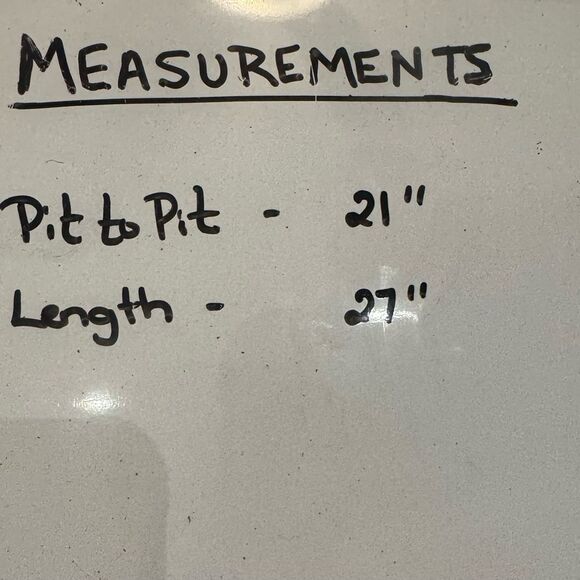 MEASUREMENTS
Pit to Pit - 21"
Length - 27"